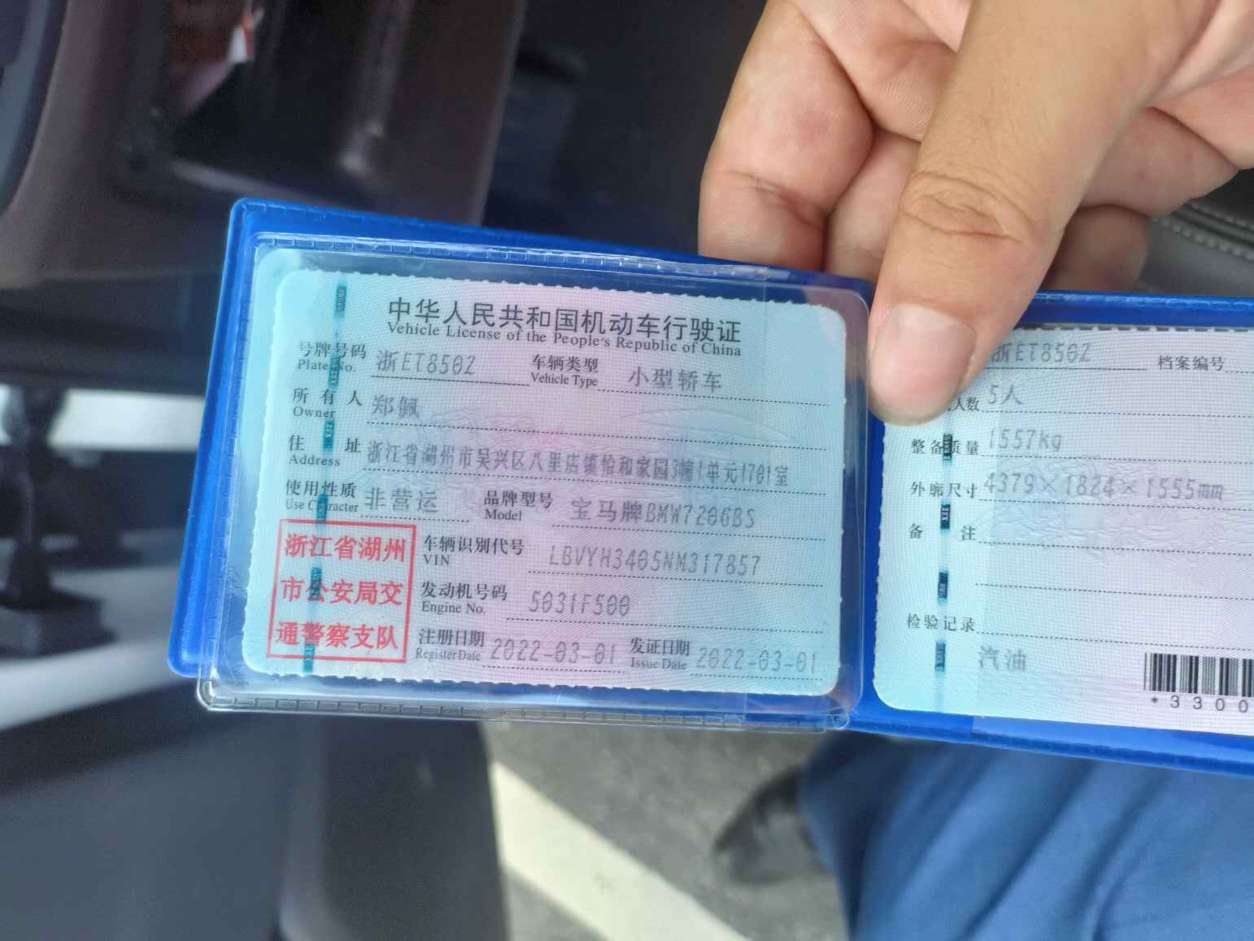 中华人民共和国机动车行驶证
Vehicle License of the People's Republic of China
号牌号码 浙ET850Z 车辆类型 小型轿车
Plate No. Vehicle Type
所有人 郑佩
Owner
住址 浙江省湖州市吴兴区八里店镇怡和家园3幢1单元1701室
Address
使用性质 非营运 品牌型号 宝马牌BMW7206BS
Use Character Model
浙江省湖州
市公安局交
通警察支队
车辆识别代号 LBVYH3405NM317857
VIN
发动机号码 5031F500
Engine No.
注册日期 2022-03-01 发证日期 2022-03-01
Register Date Issue Date
浙ET850Z 档案编号
人数 5人
整备质量 1557kg
外廓尺寸 4379×1824×1555mm
备注
检验记录
汽油
*3300